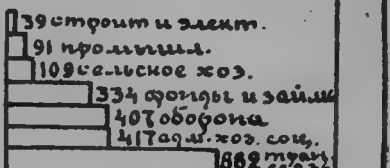 39 строит и элект.
91 промышл.
109 сельское хоз.
334 фонды и займы
407 оборона
417 адм. хоз. соц.
882 тран